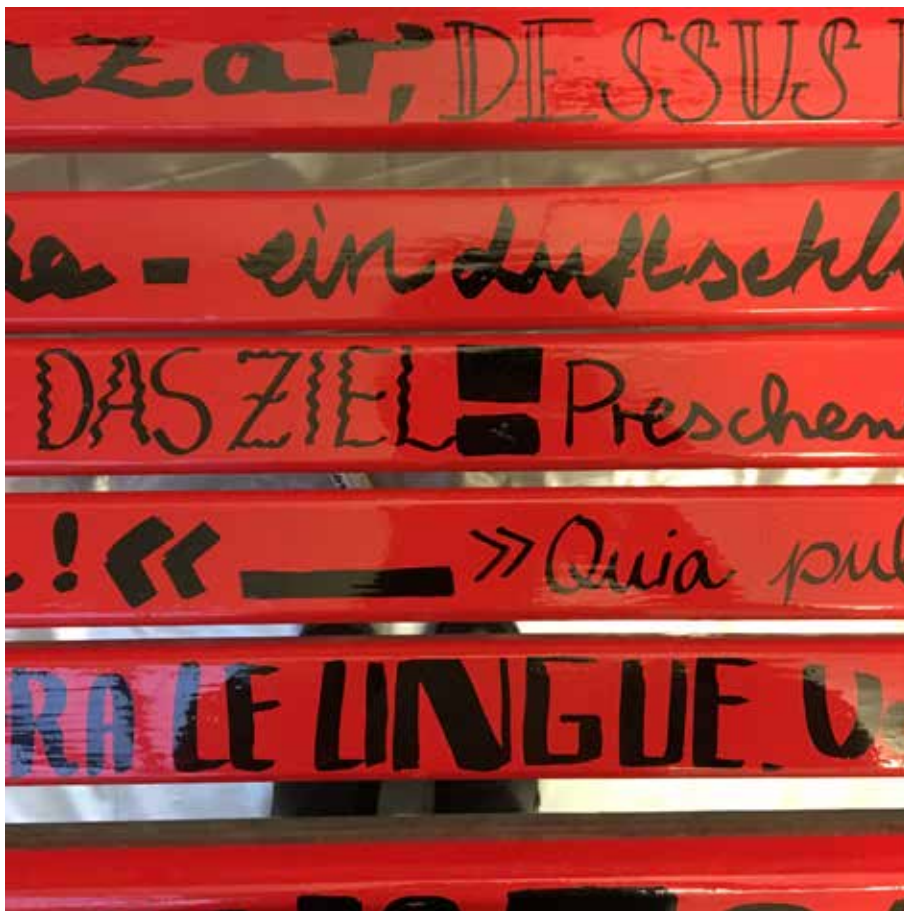 azar, DESSUS
- ein duftschl
DAS ZIEL! Preschen
!«__»Quia pul
RA LE LINGUE.